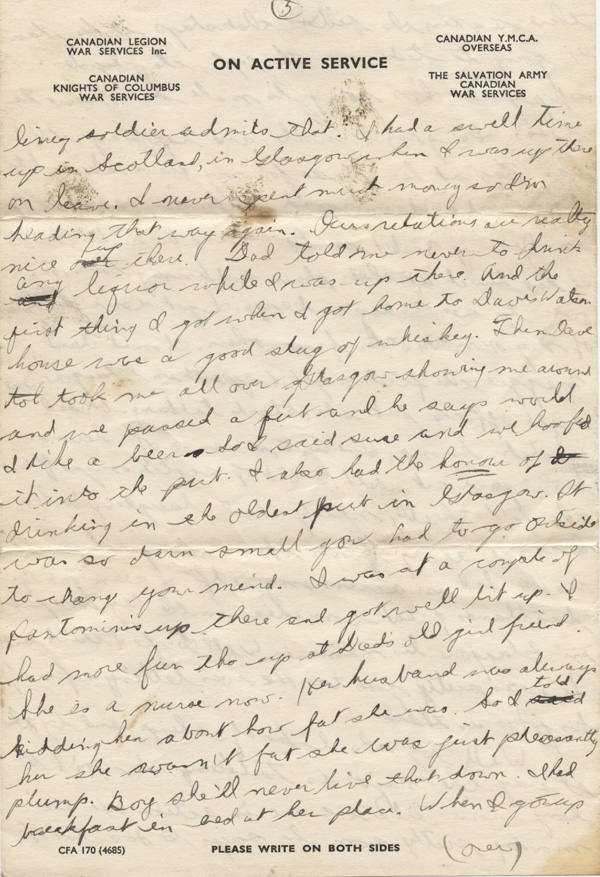 5
CANADIAN LEGION
WAR SERVICES Inc.
CANADIAN
KNIGHTS OF COLUMBUS
WAR SERVICES
ON ACTIVE SERVICE
CANADIAN Y.M.C.A.
OVERSEAS
THE SALVATION ARMY
CANADIAN
WAR SERVICES
limey soldier admits that. I had a swell time
up in Scotland, in Glasgow when I was up there
on leave. I never spent much money so I'm
heading that way again. Ours relations are really
nice up there. Dad told me never to drink
any liquor while I was up there. And the
first thing I got when I got home to Dave Watson
house was a good slug of whiskey. Then Dave
took me all over Glasgow showing me around
and we passed a pub and he says would
I like a beer. So I said sure and we hoofed
it into the pub. I also had the honour of
drinking in the oldest pub in Glasgow. It
was so darn small you had to go outside
to change your mind. I was at a couple of
Pantomines up there and got well lit up. I
had more fun tho up at Dads old girl friend.
She is a nurse now. Her husband was always
kidding her about how fat she was. So I told
her she wasn't fat she was just pleasantly
plump. Boy she'll never live that down. I had
breakfast in bed at her place. When I got up
(over)
CFA 170 (4685)
PLEASE WRITE ON BOTH SIDES